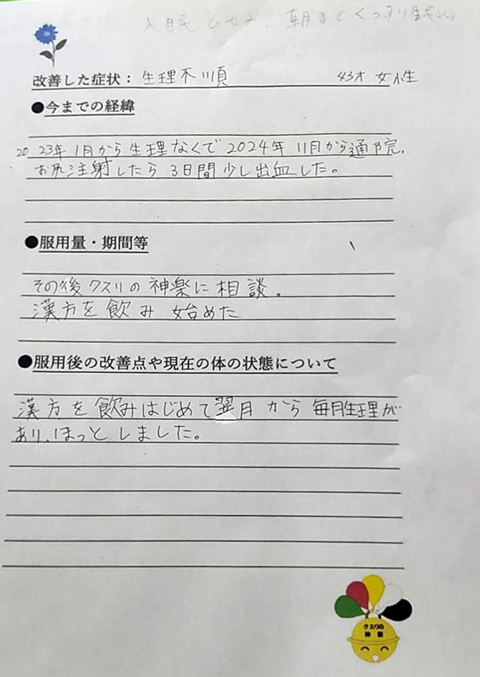 改善した症状：生理不順 43才 女性
●今までの経緯
2023年1月から生理なくて2024年11月から通院.
お尻注射したら3日間少し出血した。
●服用量・期間等
その後クスリの神楽に相談.
漢方を飲み始めた
●服用後の改善点や現在の体の状態について
漢方を飲みはじめて翌月から毎月生理が
あり、ほっとしました。
クスリの
神楽